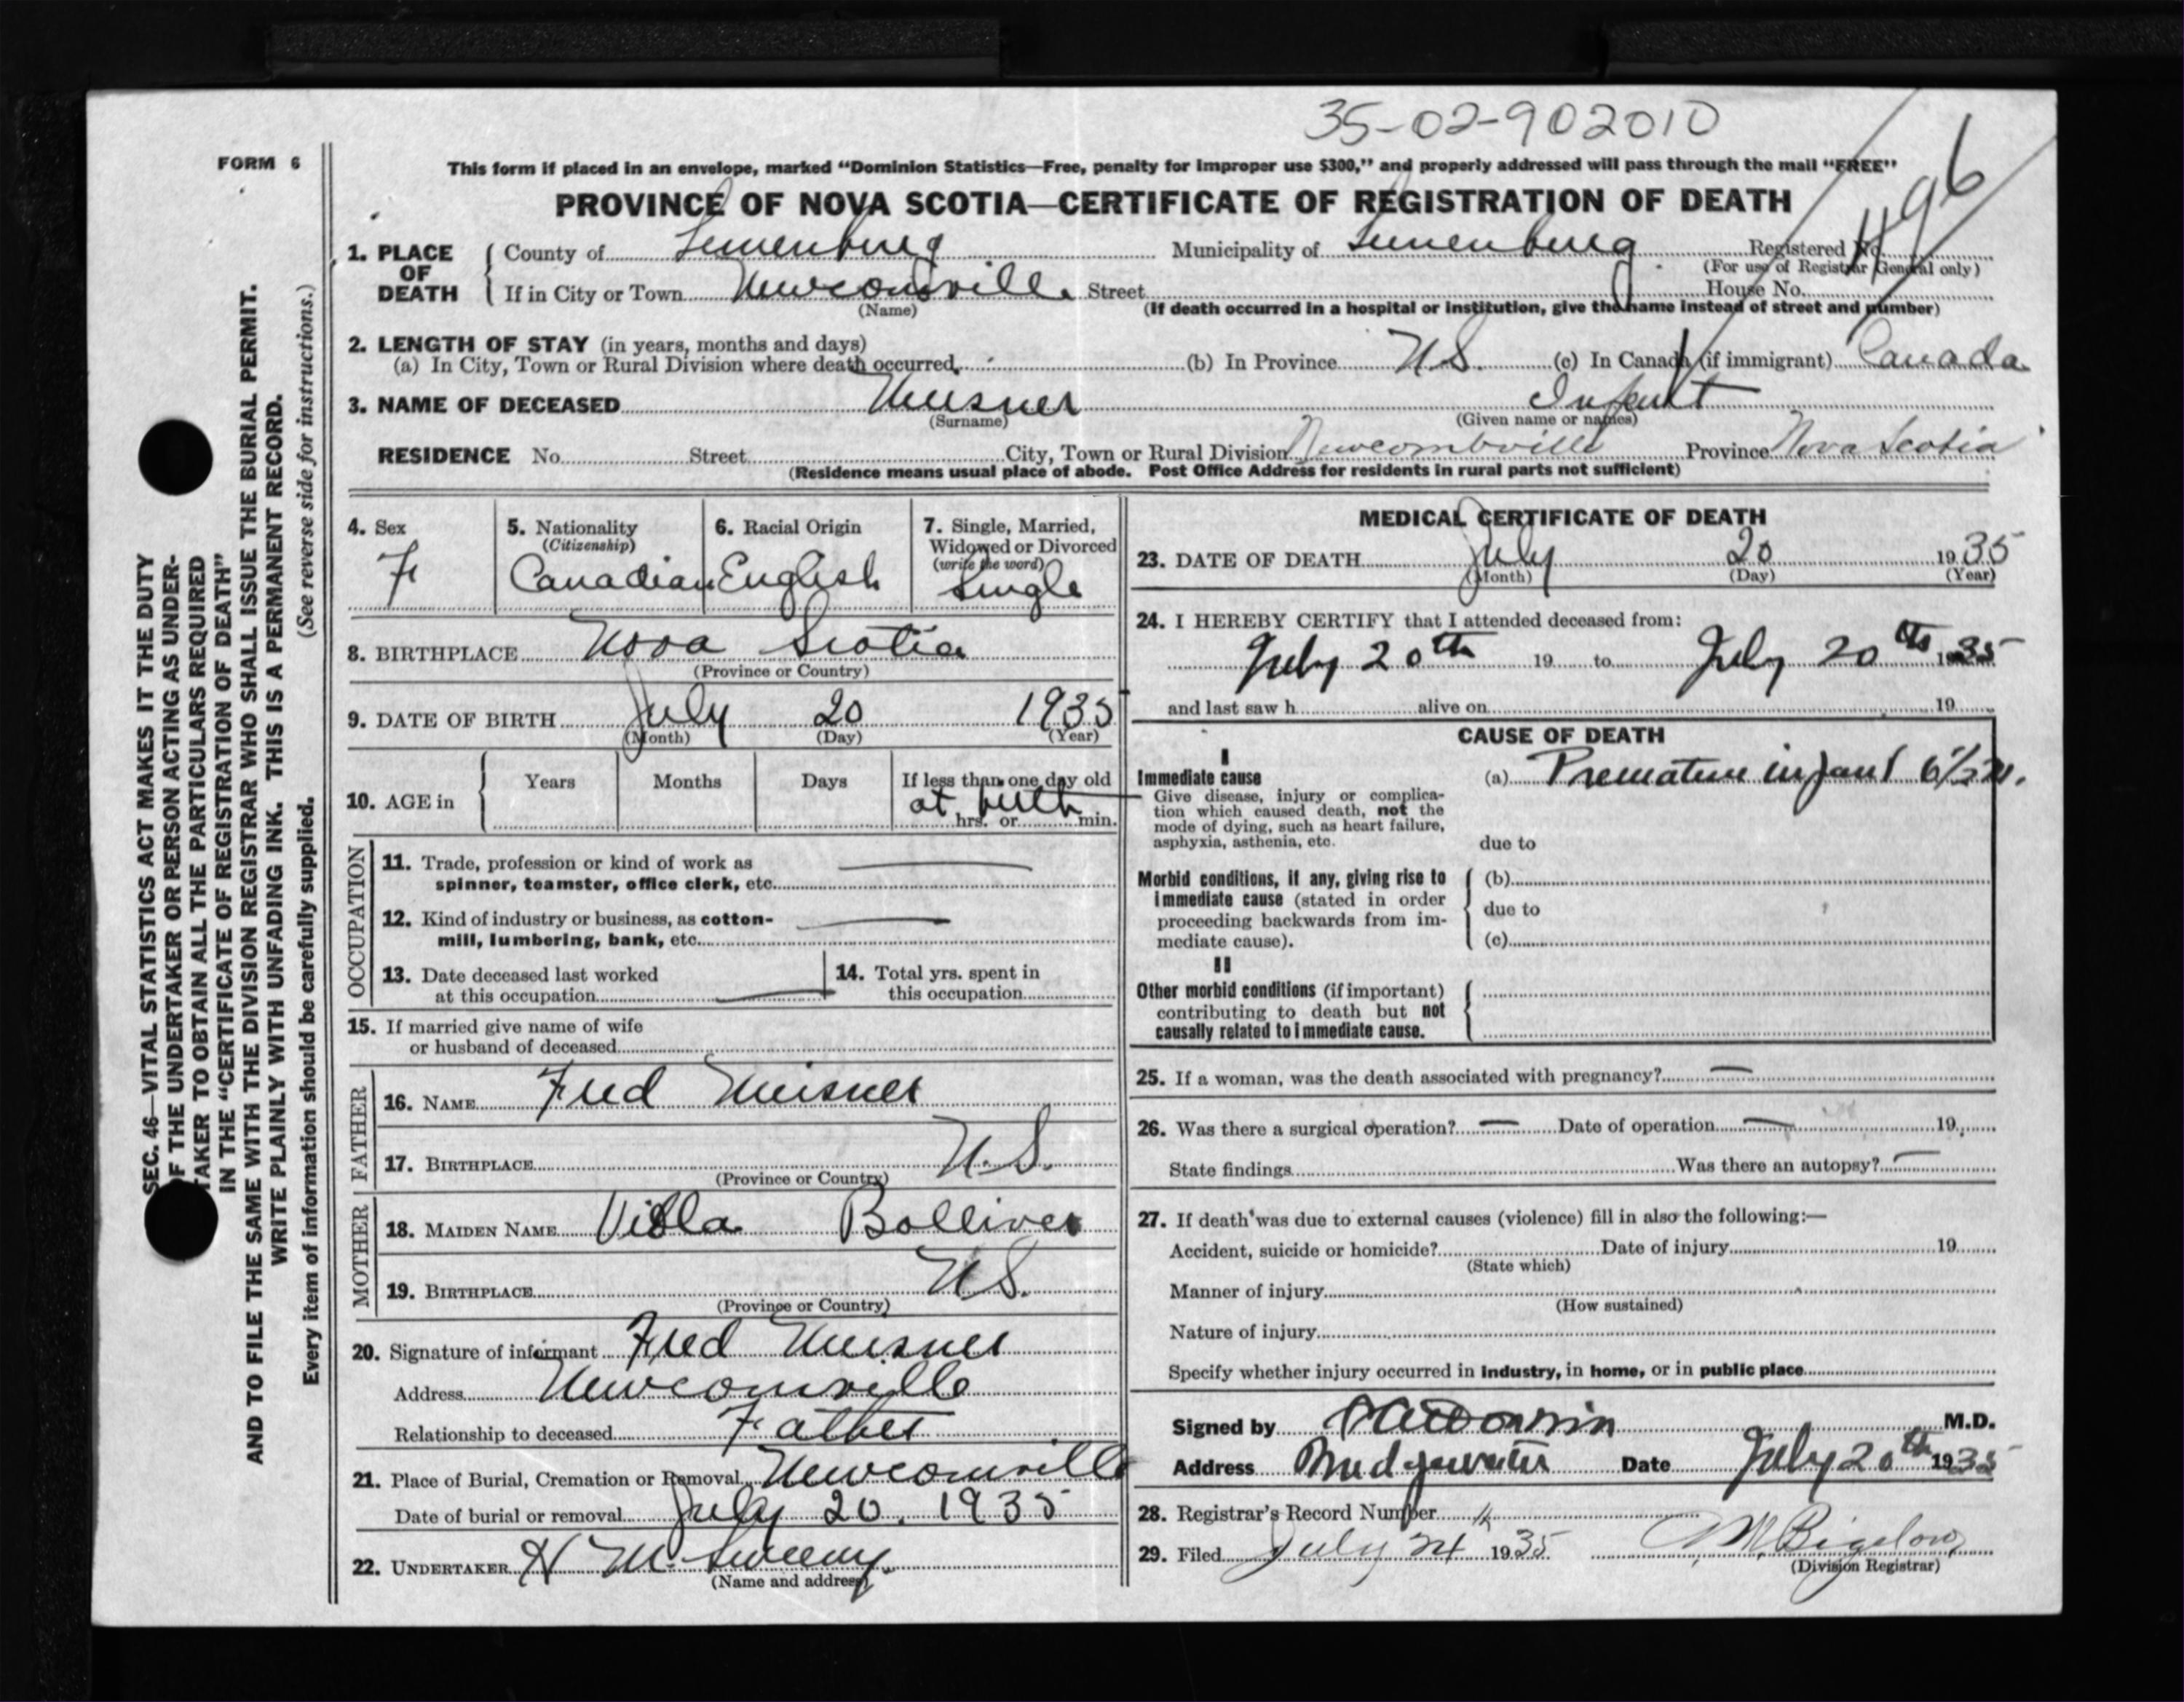 35-02-902010
FORM 6
This form if placed in an envelope, marked "Dominion Statistics—Free, penalty for improper use $300," and properly addressed will pass through the mail "FREE"
PROVINCE OF NOVA SCOTIA—CERTIFICATE OF REGISTRATION OF DEATH
496
1. PLACE OF DEATH
County of Lunenburg Municipality of Lunenburg Registered No.
(For use of Registrar General only)
If in City or Town Newcomville Street House No.
(Name) (If death occurred in a hospital or institution, give the name instead of street and number)
2. LENGTH OF STAY (in years, months and days)
(a) In City, Town or Rural Division where death occurred (b) In Province N.S. (c) In Canada (if immigrant) Canada
3. NAME OF DECEASED Meisner Infant
(Surname) (Given name or names)
RESIDENCE No. Street City, Town or Rural Division Newcombville Province Nova Scotia
(Residence means usual place of abode. Post Office Address for residents in rural parts not sufficient)
4. Sex
F
5. Nationality
(Citizenship)
Canadian
6. Racial Origin
English
7. Single, Married,
Widowed or Divorced
(write the word)
Single
8. BIRTHPLACE Nova Scotia
(Province or Country)
9. DATE OF BIRTH July 20 1935
(Month) (Day) (Year)
10. AGE in Years Months Days If less than one day old
at birth
hrs. or min.
OCCUPATION
11. Trade, profession or kind of work as
spinner, teamster, office clerk, etc.
12. Kind of industry or business, as cotton-
mill, lumbering, bank, etc.
13. Date deceased last worked
at this occupation
14. Total yrs. spent in
this occupation
15. If married give name of wife
or husband of deceased
FATHER
16. NAME Fred Meisner
17. BIRTHPLACE N.S.
(Province or Country)
MOTHER
18. MAIDEN NAME Viola Bolliver
19. BIRTHPLACE N.S.
(Province or Country)
20. Signature of informant Fred Meisner
Address Newcomville
Relationship to deceased Father
21. Place of Burial, Cremation or Removal Newcomville
Date of burial or removal July 20. 1935
22. UNDERTAKER H McSweeny
(Name and address)
MEDICAL CERTIFICATE OF DEATH
23. DATE OF DEATH July 20 1935
(Month) (Day) (Year)
24. I HEREBY CERTIFY that I attended deceased from:
July 20th 19 to July 20th 1935
and last saw h alive on 19
CAUSE OF DEATH
I
Immediate cause
Give disease, injury or complica-
tion which caused death, not the
mode of dying, such as heart failure,
asphyxia, asthenia, etc.
(a) Premature infant 6½ m.
due to
Morbid conditions, if any, giving rise to
immediate cause (stated in order
proceeding backwards from im-
mediate cause).
(b)
due to
(c)
II
Other morbid conditions (if important)
contributing to death but not
causally related to immediate cause.
25. If a woman, was the death associated with pregnancy? —
26. Was there a surgical operation? — Date of operation — 19
State findings Was there an autopsy? —
27. If death was due to external causes (violence) fill in also the following:—
Accident, suicide or homicide? Date of injury 19
(State which)
Manner of injury
(How sustained)
Nature of injury
Specify whether injury occurred in industry, in home, or in public place
Signed by M.D.
Address Bridgewater Date July 20th 1935
28. Registrar's Record Number
29. Filed July 24 1935 M. Bigelow
(Division Registrar)
SEC. 46—VITAL STATISTICS ACT MAKES IT THE DUTY
OF THE UNDERTAKER OR PERSON ACTING AS UNDER-
TAKER TO OBTAIN ALL THE PARTICULARS REQUIRED
IN THE "CERTIFICATE OF REGISTRATION OF DEATH"
AND TO FILE THE SAME WITH THE DIVISION REGISTRAR WHO SHALL ISSUE THE BURIAL PERMIT.
WRITE PLAINLY WITH UNFADING INK. THIS IS A PERMANENT RECORD.
Every item of information should be carefully supplied. (See reverse side for instructions.)